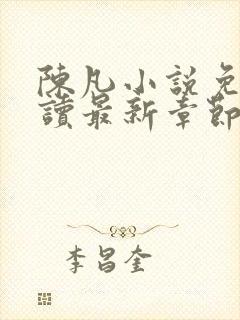 陳凡小說免
讀最新章節
李昌奎